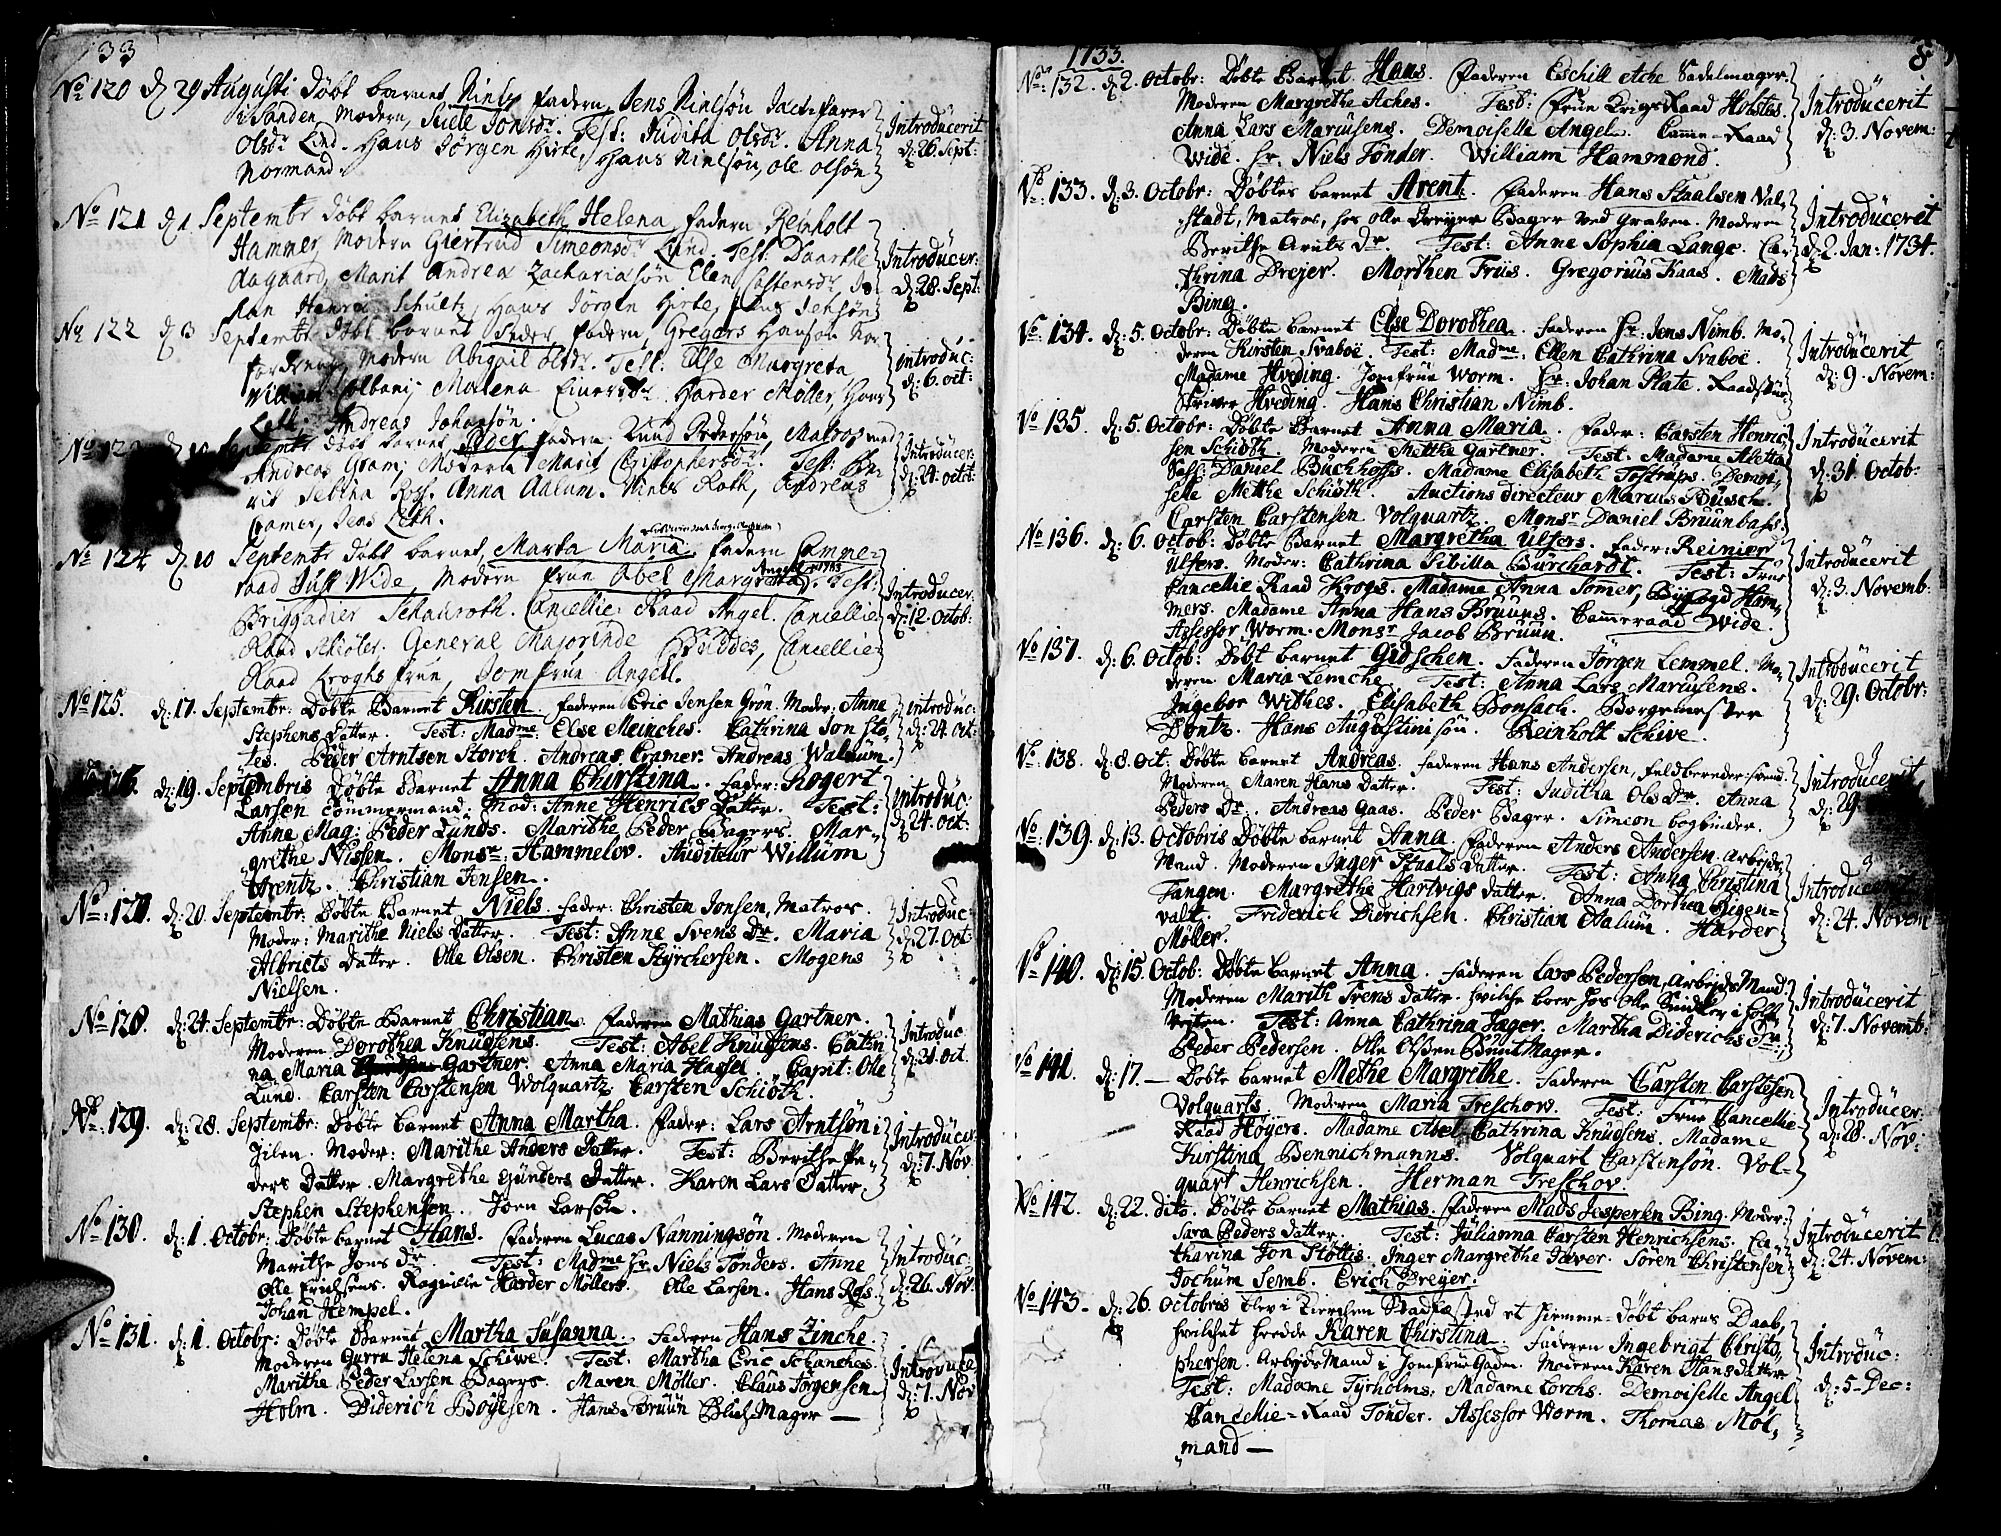 1733
No 120 d 29 Augusti Döbt barnet Niels fadern, Jens Nielsön Jacht farer
i Sanden, Modern, Siele Jonsdr. Test: Judita Olsdr. Anna
Olsdr Lind. Hans Jörgen Hirte, Hans Nielsön, ole olsön
Normand.
Introducerit
d: 26. Sept:
No 121 d 1 Septembr döbt barnet Elizabeth Helena fadern Reinholt
Hammer, Modern Giertrud Simeonsdr Lund. Test: Daarthe
Aagaard, Marit Andrea Zachariasön Elen Castensdr Jo
han Henric Schultz, Hans Jörgen Hirte, Jens Jensön
Introducer:
d: 28. Sept:
No 122 d 3 Septembr döbt barnet Peder, fadern, Gregers Hanson
Modern Abigail olsdr. Test: Else Margreta
William Malena Einersdr Harder Möller, Hans
Leth. Andreas Johansön.
introduc:
d: 6. oct:
No 123 Septembr döbt barnet Peder fadern. Knud Pedersön, Matros med
Andreas Gram, Moderen Marit Christophersdr. Test:
Sebina Ross. Anna Aalum. Niels Roth, Andreas
Cramer, Jens Leth.
Introducer:
d: 24. octob:
No 124 d 10 Septembr döbt barnet, Marta Maria. fadern Camme-
raad Just Wide, Modern Frue Abel Margreta Angell. Test:
Briggadier Schnuroth. Cancellie Raad Angel. Cancellie
Raad Schiöler. General Majorinde Buddes, Cancellie
Raad Kroghs frue, Jomfrue Angell.
Introducer.
d: 12. Octob:
No 125. d: 17. Septembr: Döbte Barnet Kirsten. faderen Eric Jensen Grön. Moder: Anne
Stephens Datter. Test: Madme Else Meinches. Cathrina Jon Stö-
tes. Peder Arntsen Storch. Andreas Cramer. Andreas Walnum.
introduc:
d: 24 oct:
No 126. d: 19. Septembris Döbte Barnet Anna Chirstina. Fader: Rogert
Larsen Tömmermand. Mod: Anne Henrics Datter. Test:
Anne Mag: Peder Lunds. Marithe Peder Bagers. Mar-
grethe Nissen. Monsr: Hammelov. Auditeur Willum
Arentz. Christian Jensen.
introduc:
d: 24. oct:
No: 127. d: 20. Septembr: Döbte Barnet Niels. Fader: Christen Jonsen, Matros.
Moder: Marithe Niels Datter. Test: Anne Svens Dr. Maria
Albriets Datter. Olle Olsen. Christen Styrchersen. Mogens
Nielsen.
Introduc:
d: 27. Oct:
No 128. d: 24. Septembr: Döbte Barnet Christian. Faderen Mathias Gartner.
Moderen Dorothea Knudsens. Test: Abel Knudsens. Cathri
na Maria Gartner. Anna Maria Hassel. Capit: Olle
Lund. Carsten Carstensen Volquartz. Carsten Schiöth.
Introduc:
d: 21. oct.
No: 129. d: 28. Septembr: Döbte Barnet Anna Martha. Fader: Lars Arntsön i
Jilen. Moder: Marithe Anders Datter. Test: Berithe Pe-
ders Datter. Margrethe Gunders Datter. Karen Lars Datter.
Stephen Stephensen. Joen Larsön.
Introducer:
d: 7. Nov:
No 130. d: 1. Octobr: Döbte Barnet Hans. Faderen Lucas Nanningsön. Moderen
Marithe Jons dr. Test: Madme Hr. Niels Tönders. Anne
Olle Erichsens. Harder Möllers. Olle Larsen. Hans Ross.
Johan Hempel.
Introduc:
d: 26. Nov.
No 131. d: 1. Octobr: Döbte Barnet Martha Susanna. Faderen Hans Zinche.
Moderen Gurru Helena Schive. Test: Martha Eric Schanches.
Marithe Peder Larsen Bagers. Maren Möller. Claus Jörgensen
Holm. Diderich Böyesen. Hans Bruun Blich-Mager —
Introduce
d: 7. Nov
1733. 8
No: 132. d: 2. Octobr: Döbte Barnet. Hans. Faderen Eschill Ache Sadelmager.
Moderen Margrethe Aches. Test: Frue Krigs Raad Holstes.
Anna Lars Marcusens. Demoiselle Angel. Camme-Raad
Wide. Hr. Niels Tönder. William Hammond.
Introducerit
d: 3. Novem:
No 133. d: 3. Octobr: Döbtes barnet Arent. Faderen Hans Staalsen Val-
stadt, Matros, hos olle Dreyer Bager ved graven. Moderen
Berithe Arnts Dr. Test: Anne Sophia Lange. Ca-
thrina Drejer. Morthen Friis. Gregorius Kaas. Mads
Bing.
Introducerit
d: 2. Jan: 1734.
No: 134. d: 5. Octobr: Döbte barnet Else Dorothea. Faderen Hr: Jens Nimb. Mo-
deren Kirsten Svaboe. Test: Madme: Ellen Cathrina Svaboe.
Madame Hveding. Jomfrue Worm. Hr: Johan Plate. Raadstue
Skriver Hveding. Hans Christian Nimb.
Introducerit
d: 9. Novem:
No 135. d: 5. Octobr: Döbte Barnet Anna Maria. Fader: Carsten Henric-
sen Schiöth. Moderen Methe Gartner. Test: Madame Aletta
Sal: Daniel Buchhofss. Madame Elisabeth Tostrups. Demoi-
selle Methe Schiöth. Auctions directeur Marcus Busch.
Carsten Carstensen Volquartz. Monsr Daniel Bruunbass.
Introducerit
d: 31. Octob:
No 136. d: 6. Octob: Döbte Barnet Margretha Ulfers. Fader: Reinier
Ulfers. Moder: Cathrina Sibilla Burchardt. Test: Frue
Cancellie Raad Krogs. Madame Anna Somer, Byfogd Ham-
mers. Madame Anna Hans Bruuns. Cammeraad Wide.
Assessor Worm. Monsr Jacob Bruun.
Introducerit
d: 3. Novemb:
No 137. d: 6. Octob: Döbt barnet Gidschen. Faderen Jörgen Lemmel. Mo-
deren Maria Lemche. Test: Anna Lars Marcusens.
Jngebor Withes. Elisabeth Bonsach. Borgemester
Dontz. Hans Augustinisön. Reinholt Schive.
Introducerit
d: 29. Octobr:
No 138. d: 8. Oct: Döbte barnet Andreas. Faderen Hans Andersen, feldbereder svend.
Moderen Maren Hans Datter. Test: Juditha Ols Dr. Anna
Peders Dr. Andreas Gaas. Peder Bager. Simeon bogbinder.
Introducerit
d: 29
No: 139. d: 13. Octobris Döbte barnet Anna. Faderen Anders Andersen. Arbejds-
Mand. Moderen Inger Staals Datter. Test: Anna Christina
Tangen. Margrethe Hartvigs datter. Anna Dorthea Bigen-
valt. Friderich Didrichsen. Christian Aalum. Harder
Möller.
Introducerit
d: 24. Novem
No 140. d: 15. Octob: Döbte barnet Anna. Faderen Lars Pedersen, Arbejds Mand.
Moderen Marith Svens datter. hvilche boer hos Olle Snidker i
Test: Anna Cathrina Jager. Martha Diderichs Dr:
Peder Pedersen. Olle Olsen Bundtmager.
Introducerit
d: 7. Novemb:
No 141. d: 17. — Döbte barnet Methe Margrethe. Faderen Carsten Carstesen
Volquarts. Moderen Maria Treschow. Test: Frue Cancellie-
Raad Höyers. Madame Abel Cathrina Knudsens. Madame
Kirstina Bennichmanns. Volquart Carstensön. Vol-
quart Henrichsen. Herman Treschov.
Introducer:
d: 28. Nov:
No 142. d: 22. dito. Döbte Barnet Mathias. Faderen Mads Jespersen Bing. Moder:
Sara Peders datter. Test: Julianna Carsten Henrichsens. Ca-
tharina Jon Stöttis. Inger Margrethe Jæver. Sören Christensen
Jochum Semb. Erich Dreyer.
Introducerit
d: 24. Novem:
No 143. d: 26. Octobris blev i Kierchen Stadfæsted et Hjemme-Döbt barns Daab,
hvilchet hedde Karen Chirstina. Faderen Ingebrigt Christo-
phersen. Arbejds Mand i Jomfrue Gaden. Moderen Karen Hans datter
Test: Madame Tyrholms. Madame Lorchs. Demoiselle Angel
Cancellie-Raad Tönder. Assessor Worm. Thomas Mol-
mand —
Introduc:
d: 5- Dec: